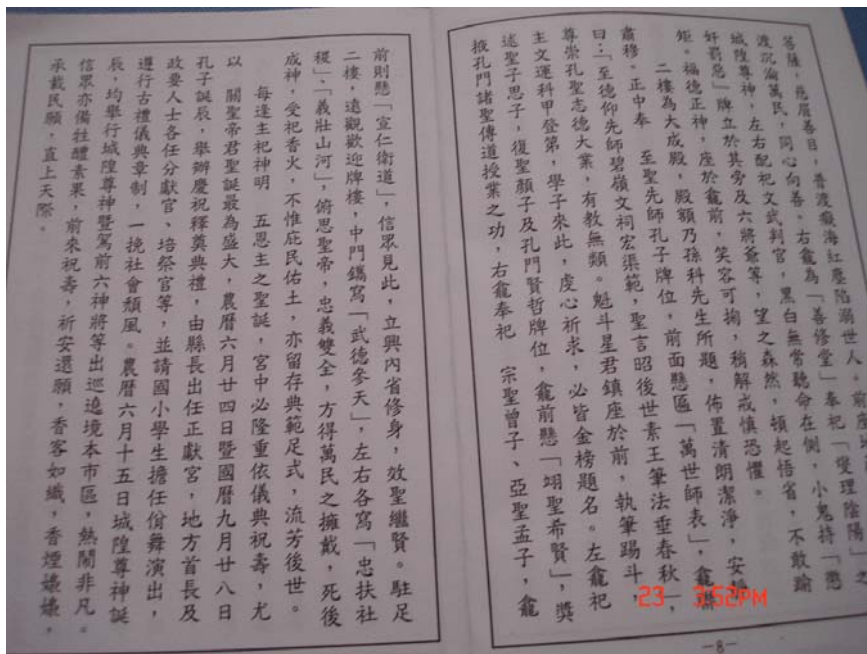 菩薩，慈眉善目，普渡癡海紅塵陷溺世人。前座
渡沉淪萬民，同心向善。右龕為「善修堂」奉祀「燮理陰陽」之
城隍尊神，左右配祀文武判官，黑白無常聽命在側，小鬼持「懲
奸罰惡」牌立於其旁及六將爺等，望之森然，頓起悟省，不敢踰
矩。福德正神，座於龕前，笑容可掬，稍解戒慎恐懼。
二樓為大成殿，殿額乃孫科先生所題，佈置清朗潔淨，安靜
肅穆。正中奉　至聖先師孔子牌位，前面懸匾「萬世師表」，龕聯
曰：「至德仰先師碧嶺文祠宏渠範，聖言昭後世素王筆法垂春秋」，
尊崇孔聖志德大業，有教無類。魁斗星君鎮座於前，執筆踢斗，
主文運科甲登第，學子來此，虔心祈求，必皆金榜題名。左龕祀
述聖子思子，復聖顏子及孔門賢哲牌位，龕前懸「翊聖希賢」，獎
掖孔門諸聖傳道授業之功，右龕奉祀　宗聖曾子、亞聖孟子，龕
23 3:52PM
—8—
前則懸「宣仁衛道」，信眾見此，立興內省修身，效聖繼賢。駐足
二樓，遠觀歡迎牌樓，中門鐫寫「武德參天」，左右各寫「忠扶社
稷」、「義壯山河」，俯思聖帝，忠義雙全，方得萬民之擁戴，死後
成神，受祀香火，不惟庇民佑土，亦留存典範足式，流芳後世。
每逢主祀神明　五恩主之聖誕，宮中必隆重依儀典祝壽，尤
以　關聖帝君聖誕最為盛大，農曆六月廿四日暨國曆九月廿八日
孔子誕辰，舉辦慶祝釋奠典禮，由縣長出任正獻官，地方首長及
政要人士各任分獻官、培祭官等，並請國小學生擔任佾舞演出，
遵行古禮儀典章制，一挽社會頹風。農曆六月十五日城隍尊神誕
辰，均舉行城隍尊神暨駕前六神將等出巡遶境本市區，熱鬧非凡。
信眾亦備牲醴素果，前來祝壽，祈安還願，香客如織，香煙嬝嬝，
承載民願，直上天際。